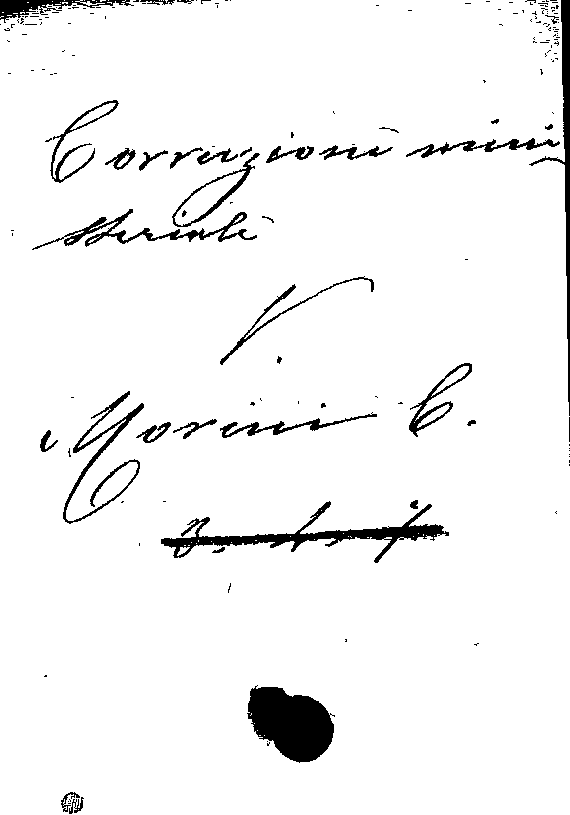 Corruzione mini
steriale
V.
Morini C.
3. 1. 7